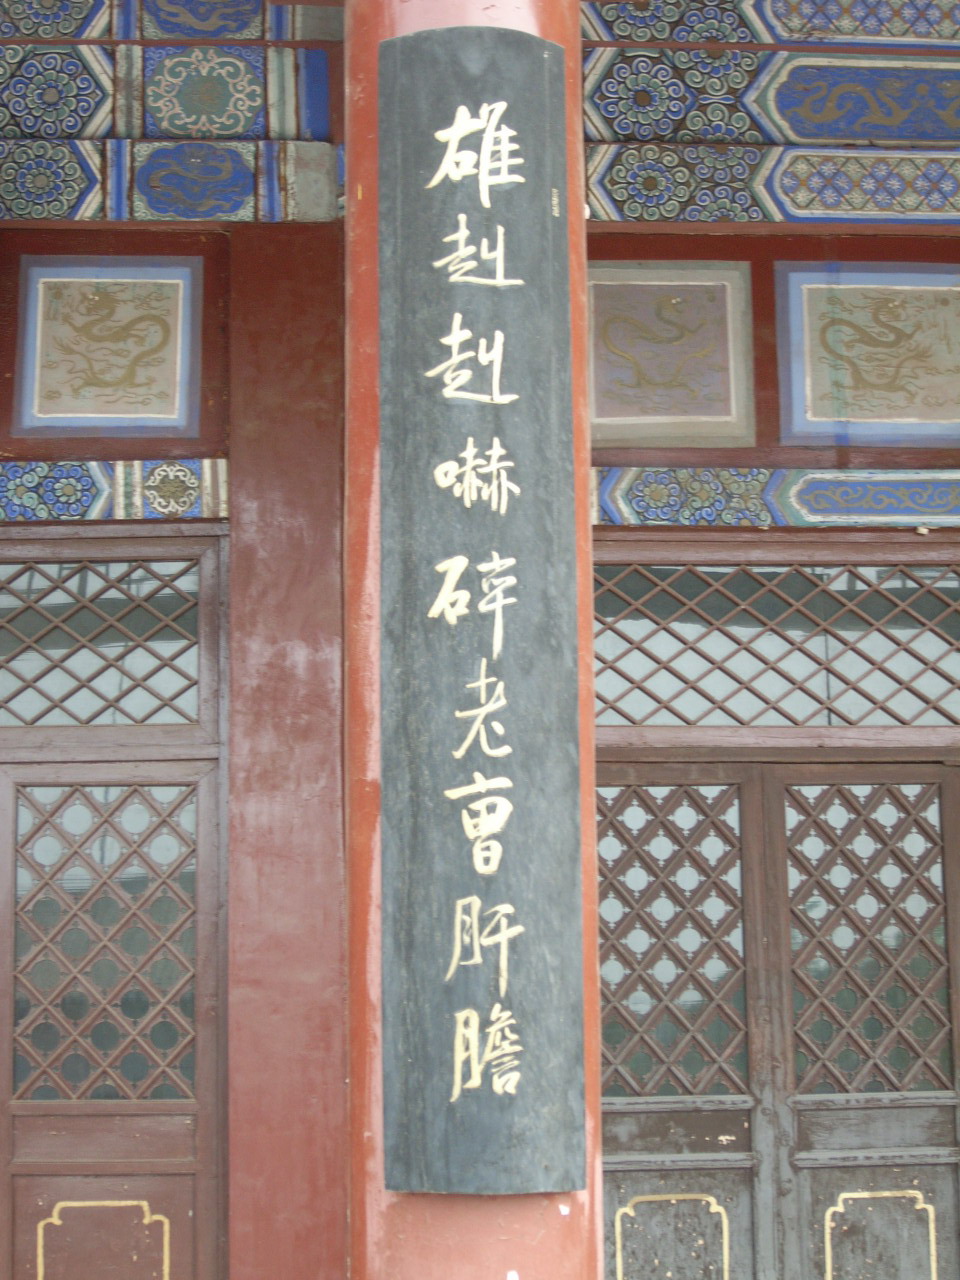 雄赳赳嚇碎老曹肝膽